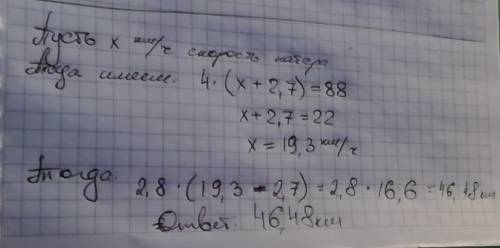 Пусть x км/ч скорость катера
Тогда имеем. 4 · (x + 2,7) = 88
x + 2,7 = 22
x = 19,3 км/ч
Тогда: 2,8 · (19,3 - 2,7) = 2,8 · 16,6 = 46,48 км
Ответ. 46,48 км